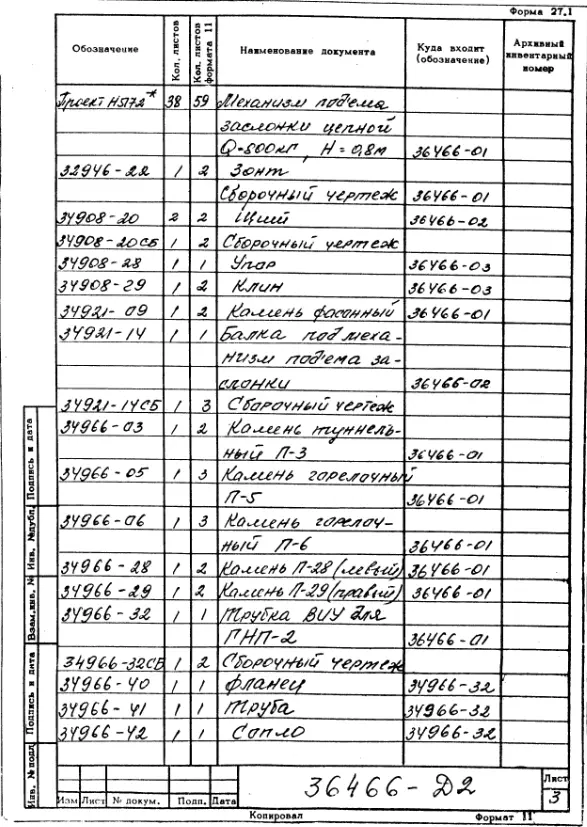 Форма 27.1
Обозначение Кол. листов Кол. листов формата 11 Наименование документа Куда входит (обозначение) Архивный инвентарный номер
Проект Н5172* 38 59 Механизм подъема
заслонки цепной
Q-500кг, H=0,8м 36466-01
32946-22 1 2 Зонт
Сборочный чертеж 36466-01
34908-20 2 2 36466-02
34908-20СБ 1 2 Сборочный чертеж
34908-28 1 1 Упор 36466-03
34908-29 1 2 Клин 36466-03
34921-09 1 2 Камень фасонный 36466-01
34921-14 1 1 Балка под меха-
низм подъема за-
слонки 36466-02
34921-14СБ 1 3 Сборочный чертеж
34966-03 1 2 Камень туннель-
ный П-3 36466-01
34966-05 1 3 Камень горелочный
П-5 36466-01
34966-06 1 3 Камень горелоч-
ный П-6 36466-01
34966-28 1 2 Камень П-28 (левый) 36466-01
34966-29 1 2 Камень П-29 (правый) 36466-01
34966-32 1 1 Трубка ВИУ для
ГНП-2 36466-01
34966-32СБ 1 2 Сборочный чертеж
34966-40 1 1 Фланец 34966-32
34966-41 1 1 Труба 34966-32
34966-42 1 1 Сопло 34966-32
Подпись и дата
Инв. №дубл.
Взам.инв. №
Подпись и дата
Инв. №подл
36466-Д2
Лист
3
Изм Лист № докум. Подп. Дата
Копировал Формат 11